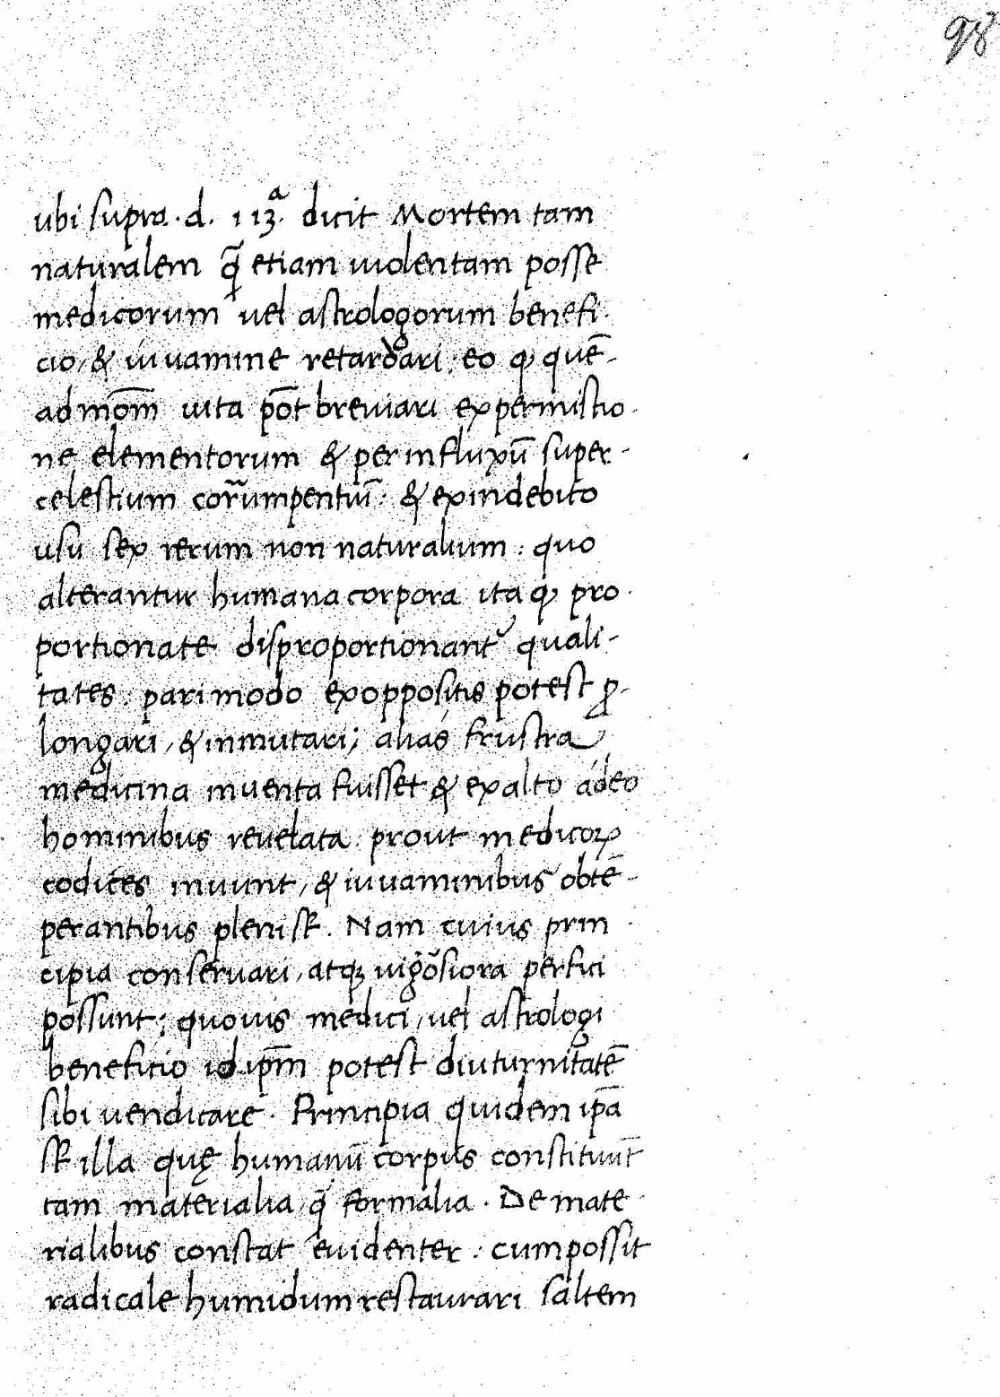 98
ubi supra. d. 113.ª dicit Mortem tam
naturalem q̃ etiam uiolentam posse
medicorum uel astrologorum benefi-
cio, & iuuamine retardari: eo qͥ quē-
admo͞m uita po͞t breuiari ex permistio-
ne elementorum & per influxū super-
celestium corr̃umpentiū: & ex indebito
usu sex rerum non naturalium: quo
alterantur humana corpora ita qͥ pro-
portionate disproportionant᷑ quali-
tates: pari modo ex oppositis potest ꝓ-
longari, & inmutari; alias frustra
medicina inuenta fuisset & ex alto adeo
hominibus reuelata prout medicoꝝ
codices inuunt, & iuuaminibus obtē-
perantibus pleni sꝭ. Nam cuius prin-
cipia conseruari, atqꝫ uigo͂siora perfici
possunt; quouis medici, uel astrologi
beneficio id ip͞m potest diuturnitatē
sibi uendicare. Principia quidem ip͞a
sꝭ illa quę humanū corpus constituūt
tam materialia q̃ formalia. De mate-
rialibus constat euidenter: cum possit
radicale humidum restaurari saltem